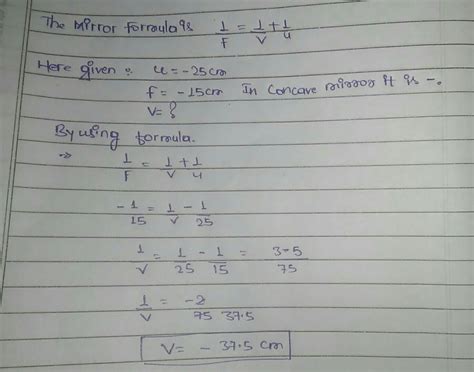 The Mirror formula is 1/F = 1/V + 1/u
Here given : u = -25cm
f = -15cm In Concave mirror it is -.
V = ?
By using formula.
⇒ 1/F = 1/V + 1/u
-1/15 = 1/V - 1/25
1/V = 1/25 - 1/15 = 3-5/75
1/V = -2/75 37.5
V = - 37.5 cm